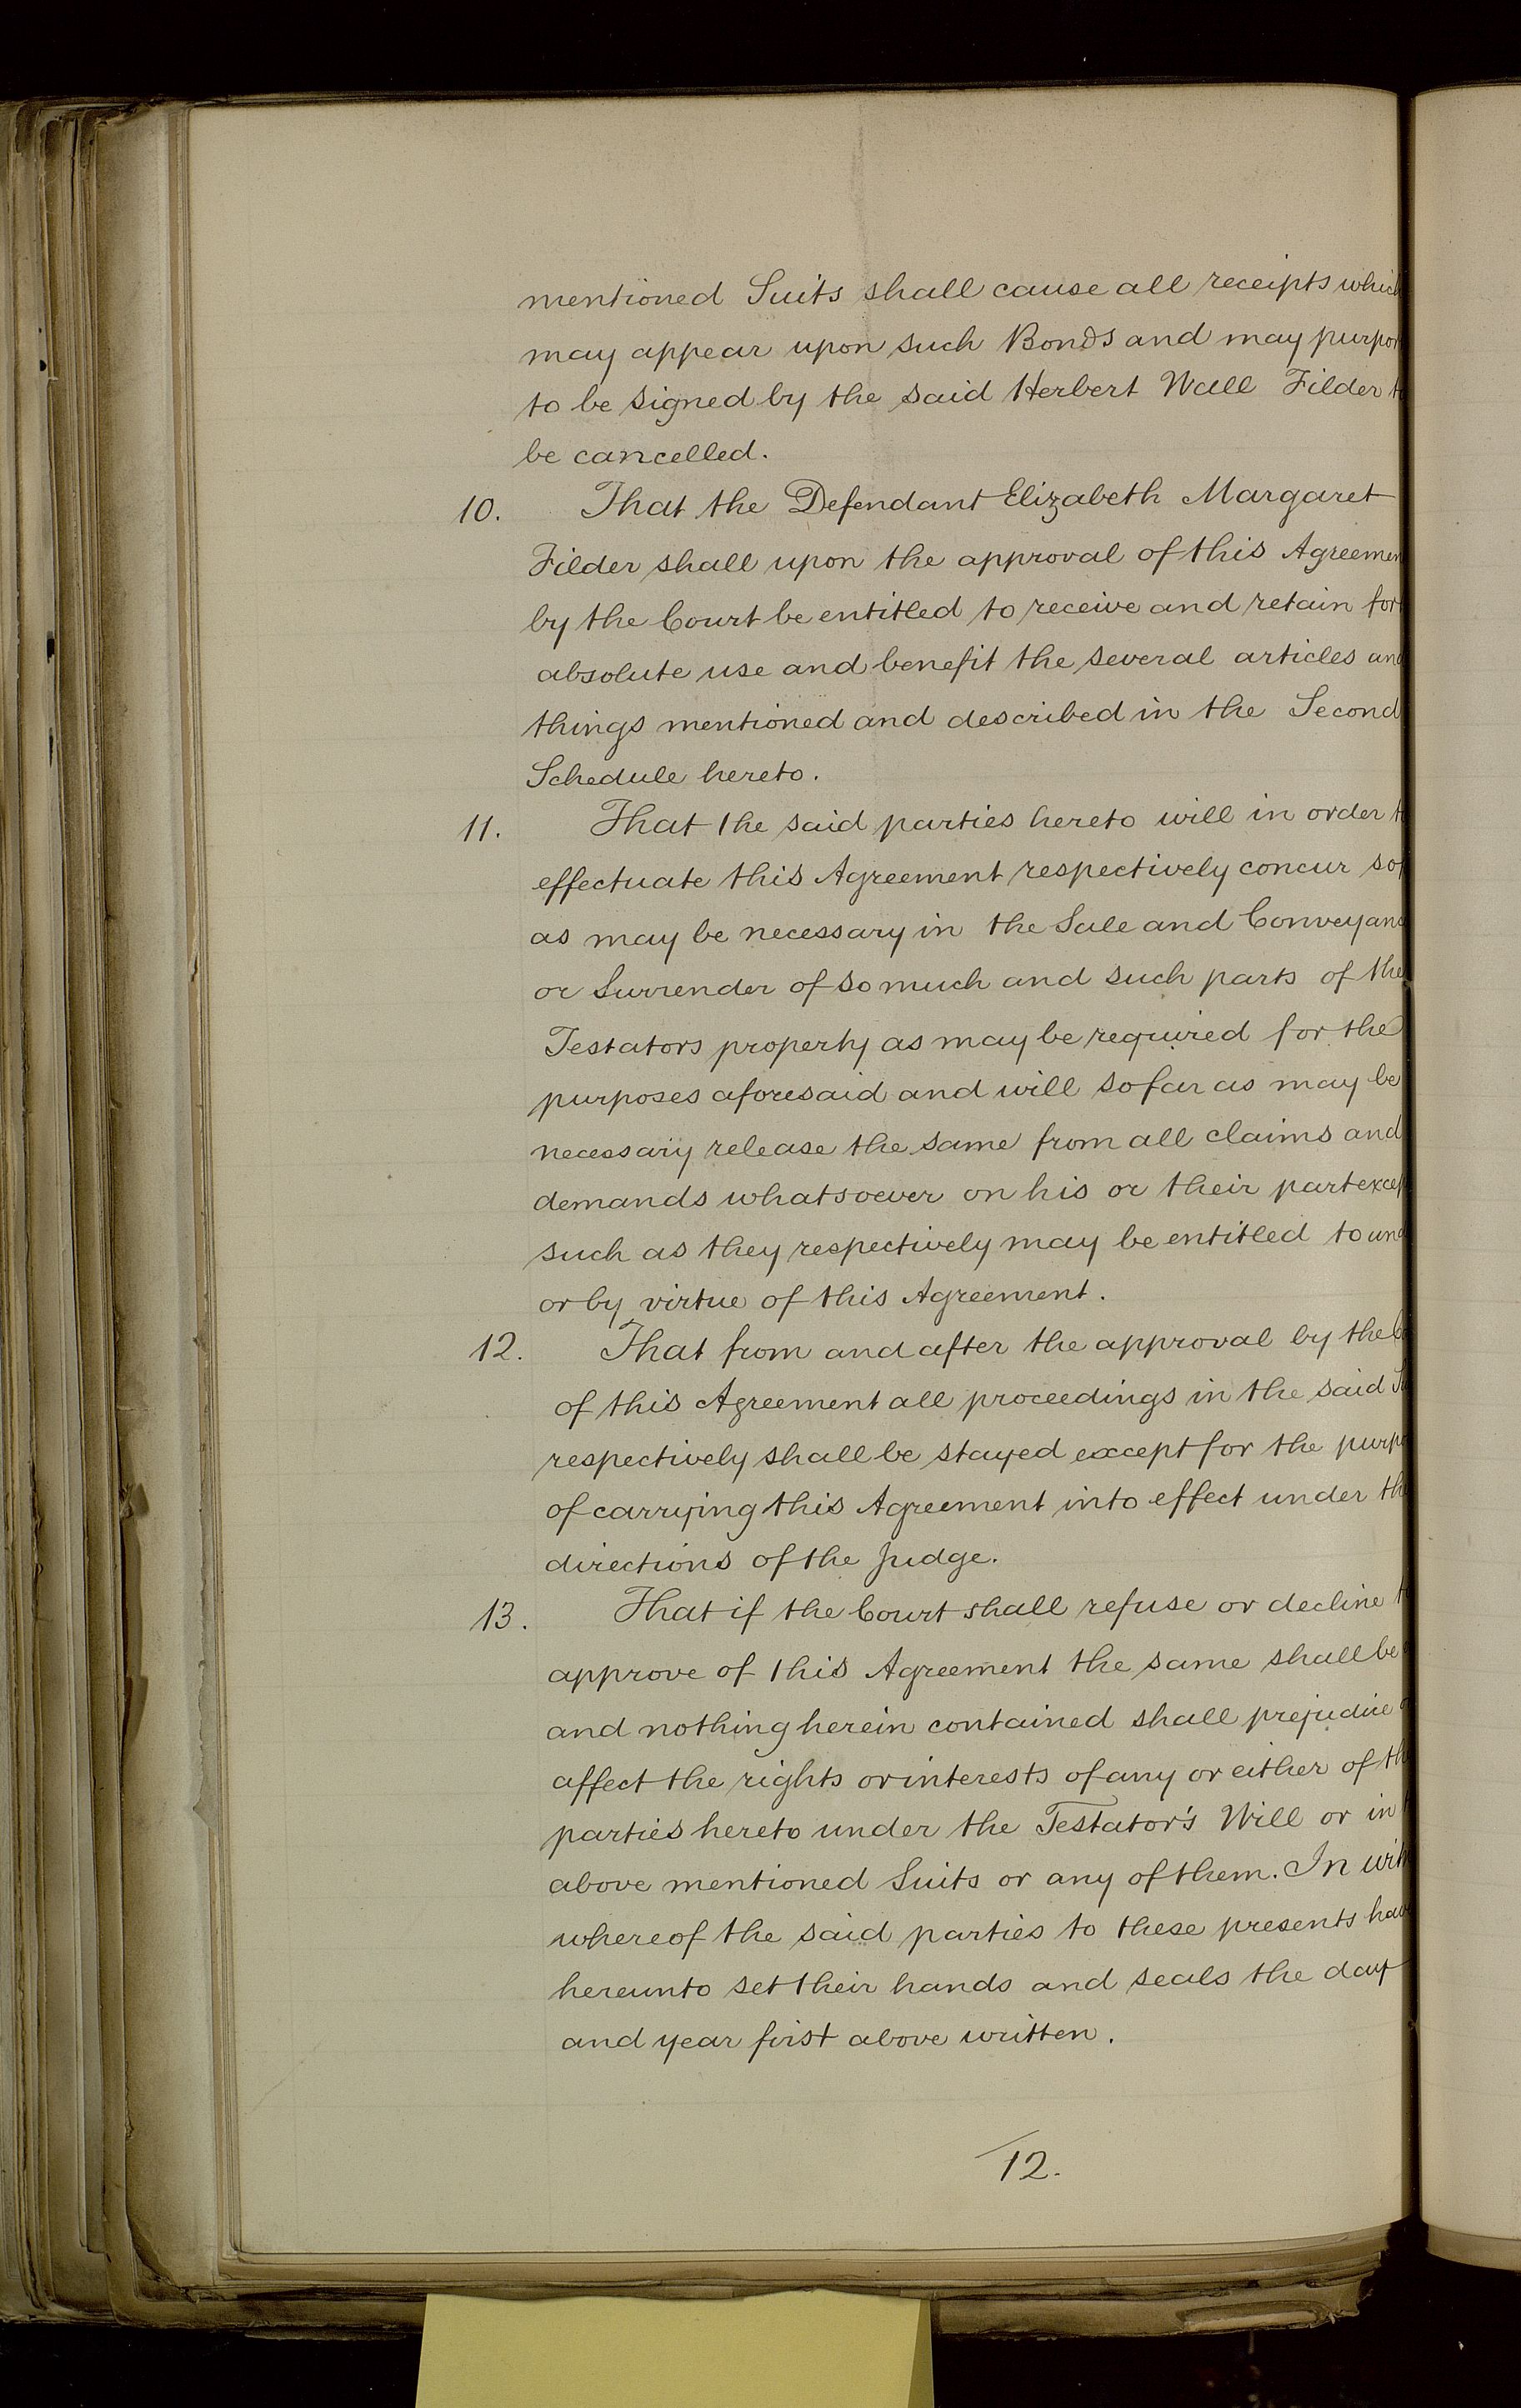 mentioned Suits shall cause all receipts which
may appear upon such Bonds and may purpor
to be signed by the said Herbert Wall Filder to
be cancelled.
10. That the Defendant Elizabeth Margaret
Filder shall upon the approval of this Agreemen
by the Court be entitled to receive and retain for
absolute use and benefit the several articles and
things mentioned and described in the Second
Schedule hereto.
11. That the said parties hereto will in order to
effectuate this Agreement respectively concur so
as may be necessary in the Sale and Conveyanc
or Surrender of so much and such parts of the
Testators property as may be required for the
purposes aforesaid and will so far as may be
necessary release the same from all claims and
demands whatsoever on his or their part excep
such as they respectively may be entitled to und
or by virtue of this Agreement.
12. That from and after the approval by the Co
of this Agreement all proceedings in the said Su
respectively shall be stayed except for the purpo
of carrying this Agreement into effect under the
directions of the Judge.
13. That if the Court shall refuse or decline t
approve of this Agreement the same shall be
and nothing herein contained shall prejudice
affect the rights or interests of any or either of th
parties hereto under the Testator's Will or in t
above mentioned Suits or any of them. In witn
whereof the said parties to these presents have
hereunto set their hands and seals the day
and year first above written.
12.